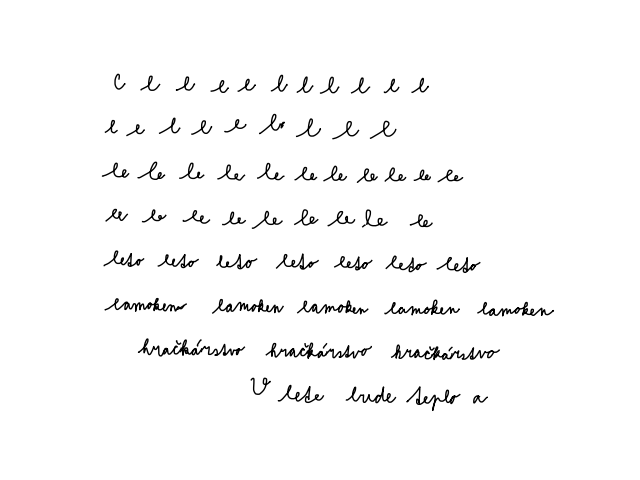 C l l e e l l l l e l
e e l l e l l l l
le le le le le le le le le le le
le le le le le le le le le
leto leto leto leto leto leto leto
lamoken lamoken lamoken lamoken lamoken
hračkárstvo hračkárstvo hračkárstvo
V lete bude teplo a